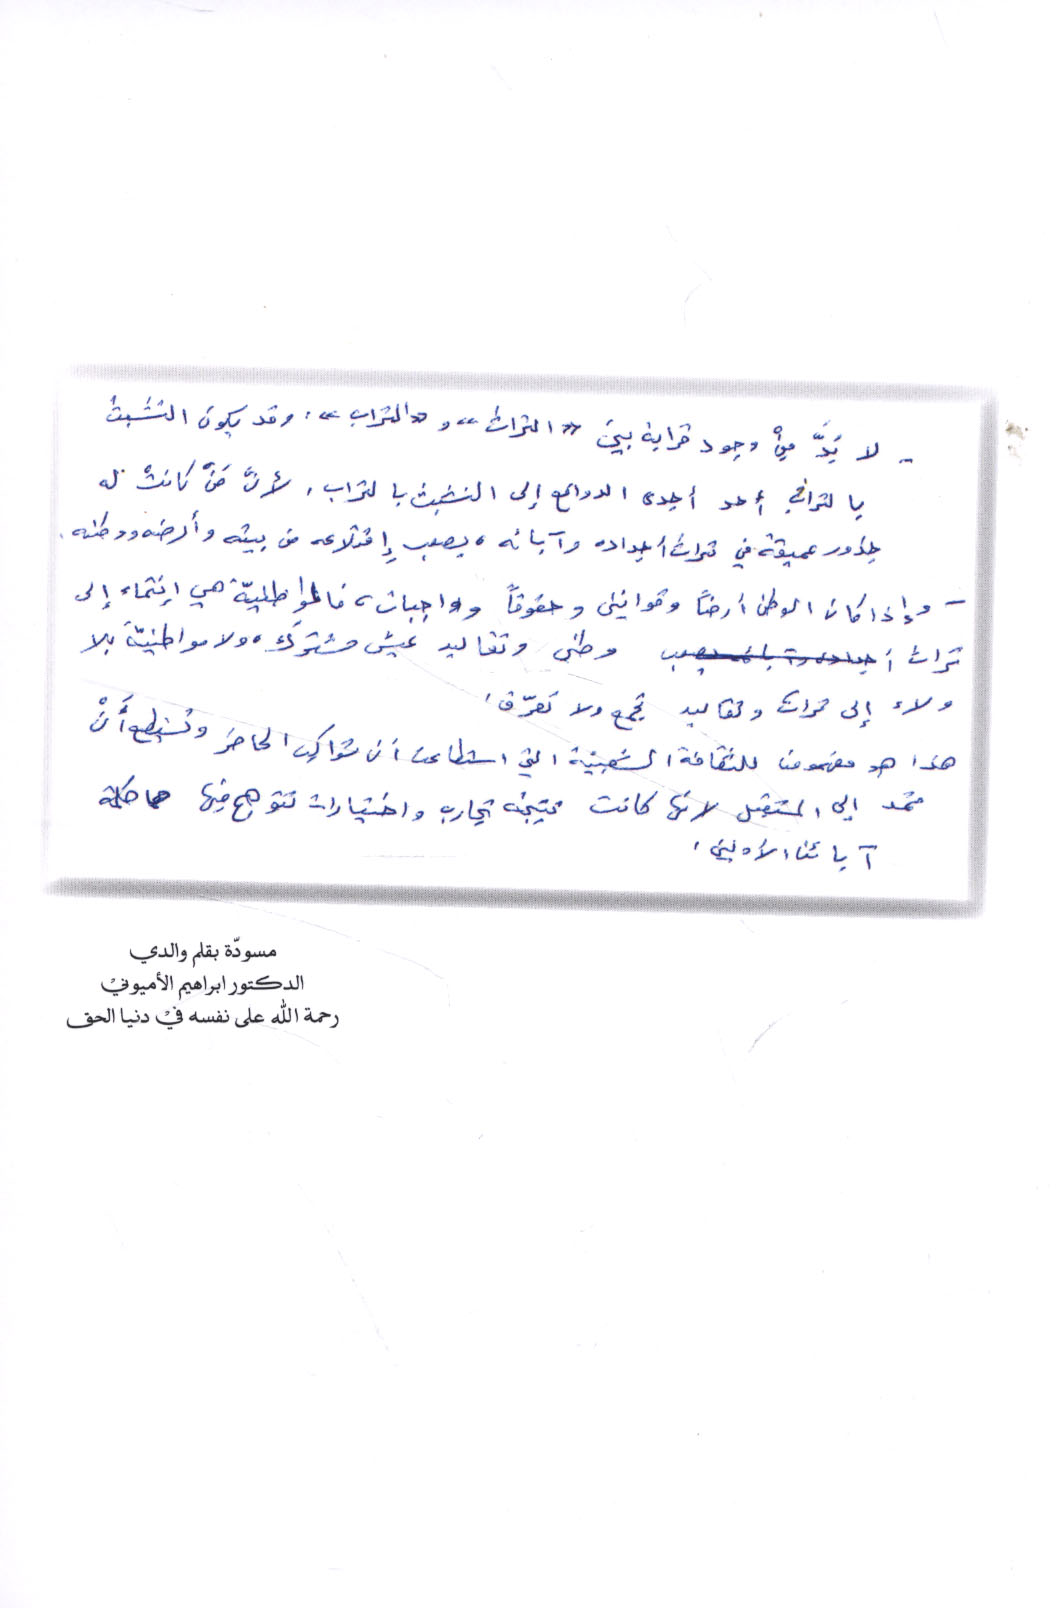 - لا بُدَّ مِنْ وجود قرابة بينَ «التراث» و«التراب». وقد يكون التشبّث
بالتراث أحد أجدى الدوافع إلى التشبّث بالتراب، لأنَّ مَنْ كانتْ له
جذور عميقة في تراث أجداده وآبائه، يصعب إقتلاعه من بيته وأرضه ووطنه.
- وإذا كان الوطن أرضاً وقوانين وحقوقاً وواجبات، فالمواطنيّة هي إنتماء إلى
تراث وطني وتقاليد عيش مشتركَ، ولا مواطنيّة بلا
ولاء إلى تراث وتقاليد تجمع ولا تفرّق.
هذا هو مفهومنا للثقافة الشعبيّة التي استطاعت أن تواكِب الحاضرَ وتستطيع أَنْ
تمتد إلى المستقبل لأنها كانت نتيجة تجارب واختيارات تتوهج فيها حكمة
آبائنا الأولين.
مسودّة بقلم والدي
الدكتور ابراهيم الأميوني
رحمة الله على نفسه في دنيا الحق